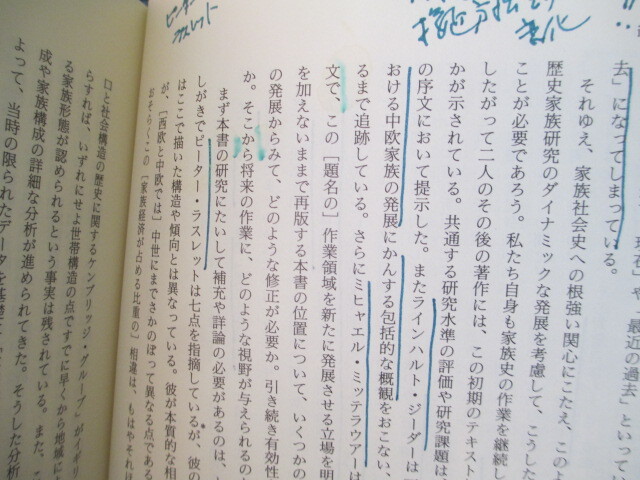 去」になってしまっている。
それゆえ、家族社会史への根強い関心にこたえ、このよ
歴史家族研究のダイナミックな発展を考慮して、こうした
ことが必要であろう。私たち自身も家族史の作業を継続し
したがって二人のその後の著作には、この初期のテキスト
かが示されている。共通する研究水準の評価や研究課題は
の序文において提示した。またラインハルト・ジーダーは
おける中欧家族の発展にかんする包括的な概観をおこない、
るまで追跡している。さらにミヒャエル・ミッテラウアーは
文で、この［題名の］作業領域を新たに発展させる立場を明
を加えないままで再版する本書の位置について、いくつかの
の発展からみて、どのような修正が必要か。引き続き有効性
か。そこから将来の作業に、どのような視野が与えられるのか
まず本書の研究にたいして補充や詳論の必要があるのは、
しがきでピーター・ラスレットは七点を指摘しているが、彼の
はここで描いた構造や傾向とは異なっている。彼が本質的な相
が、［西欧と中欧では］中世にまでさかのぼって異なる点である
おそらくこの［家族経済が占める比重の］相違は、もはやそれほ
ピーター
ラスレット
口と社会構造の歴史に関するケンブリッジ・グループ」がイギリ
らすれば、いずれにせよ世帯構造の点ですでに早くから地域に
る家族形態が認められるという事実は残されている。また、
成や家族構成の詳細な分析が進められてきた。そうした分析
よって、当時の限られたデータを基礎